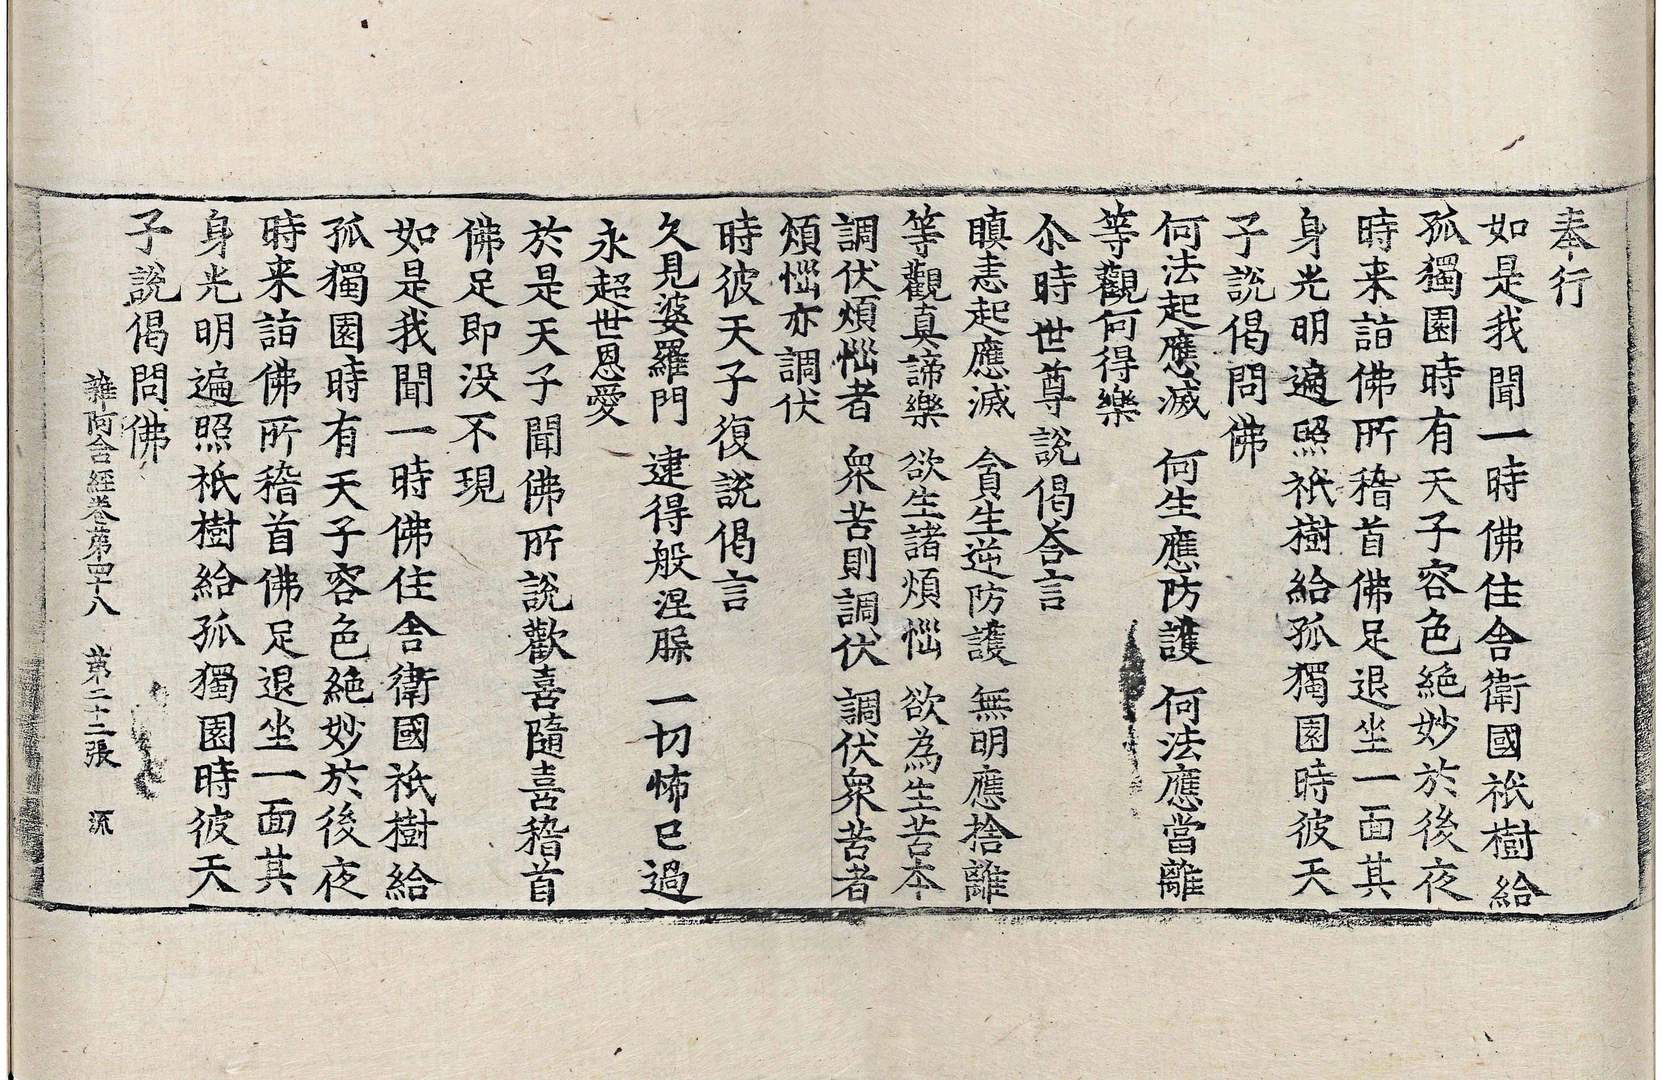 奉行
如是我聞一時佛住舎衛國祇樹給
孤獨園時有天子容色絶妙於後夜
時来詣佛所稽首佛足退坐一面其
身光明遍照祇樹給孤獨園時彼天
子說偈問佛
何法起應滅 何生應防護 何法應當離
等觀何得樂
尒時世尊說偈荅言
瞋恚起應滅 貪生逆防護 無明應捨離
等觀真諦樂 欲生諸煩惱 欲為生苦本
調伏煩惱者 衆苦則調伏 調伏衆苦者
煩惱亦調伏
時彼天子復說偈言
久見婆羅門 逮得般涅槃 一切怖已過
永超世恩愛
於是天子聞佛所說歡喜隨喜稽首
佛足即没不現
如是我聞一時佛住舎衛國祇樹給
孤獨園時有天子容色絶妙於後夜
時来詣佛所稽首佛足退坐一面其
身光明遍照祇樹給孤獨園時彼天
子說偈問佛
雜阿含經卷第四十八 第二十二張 流